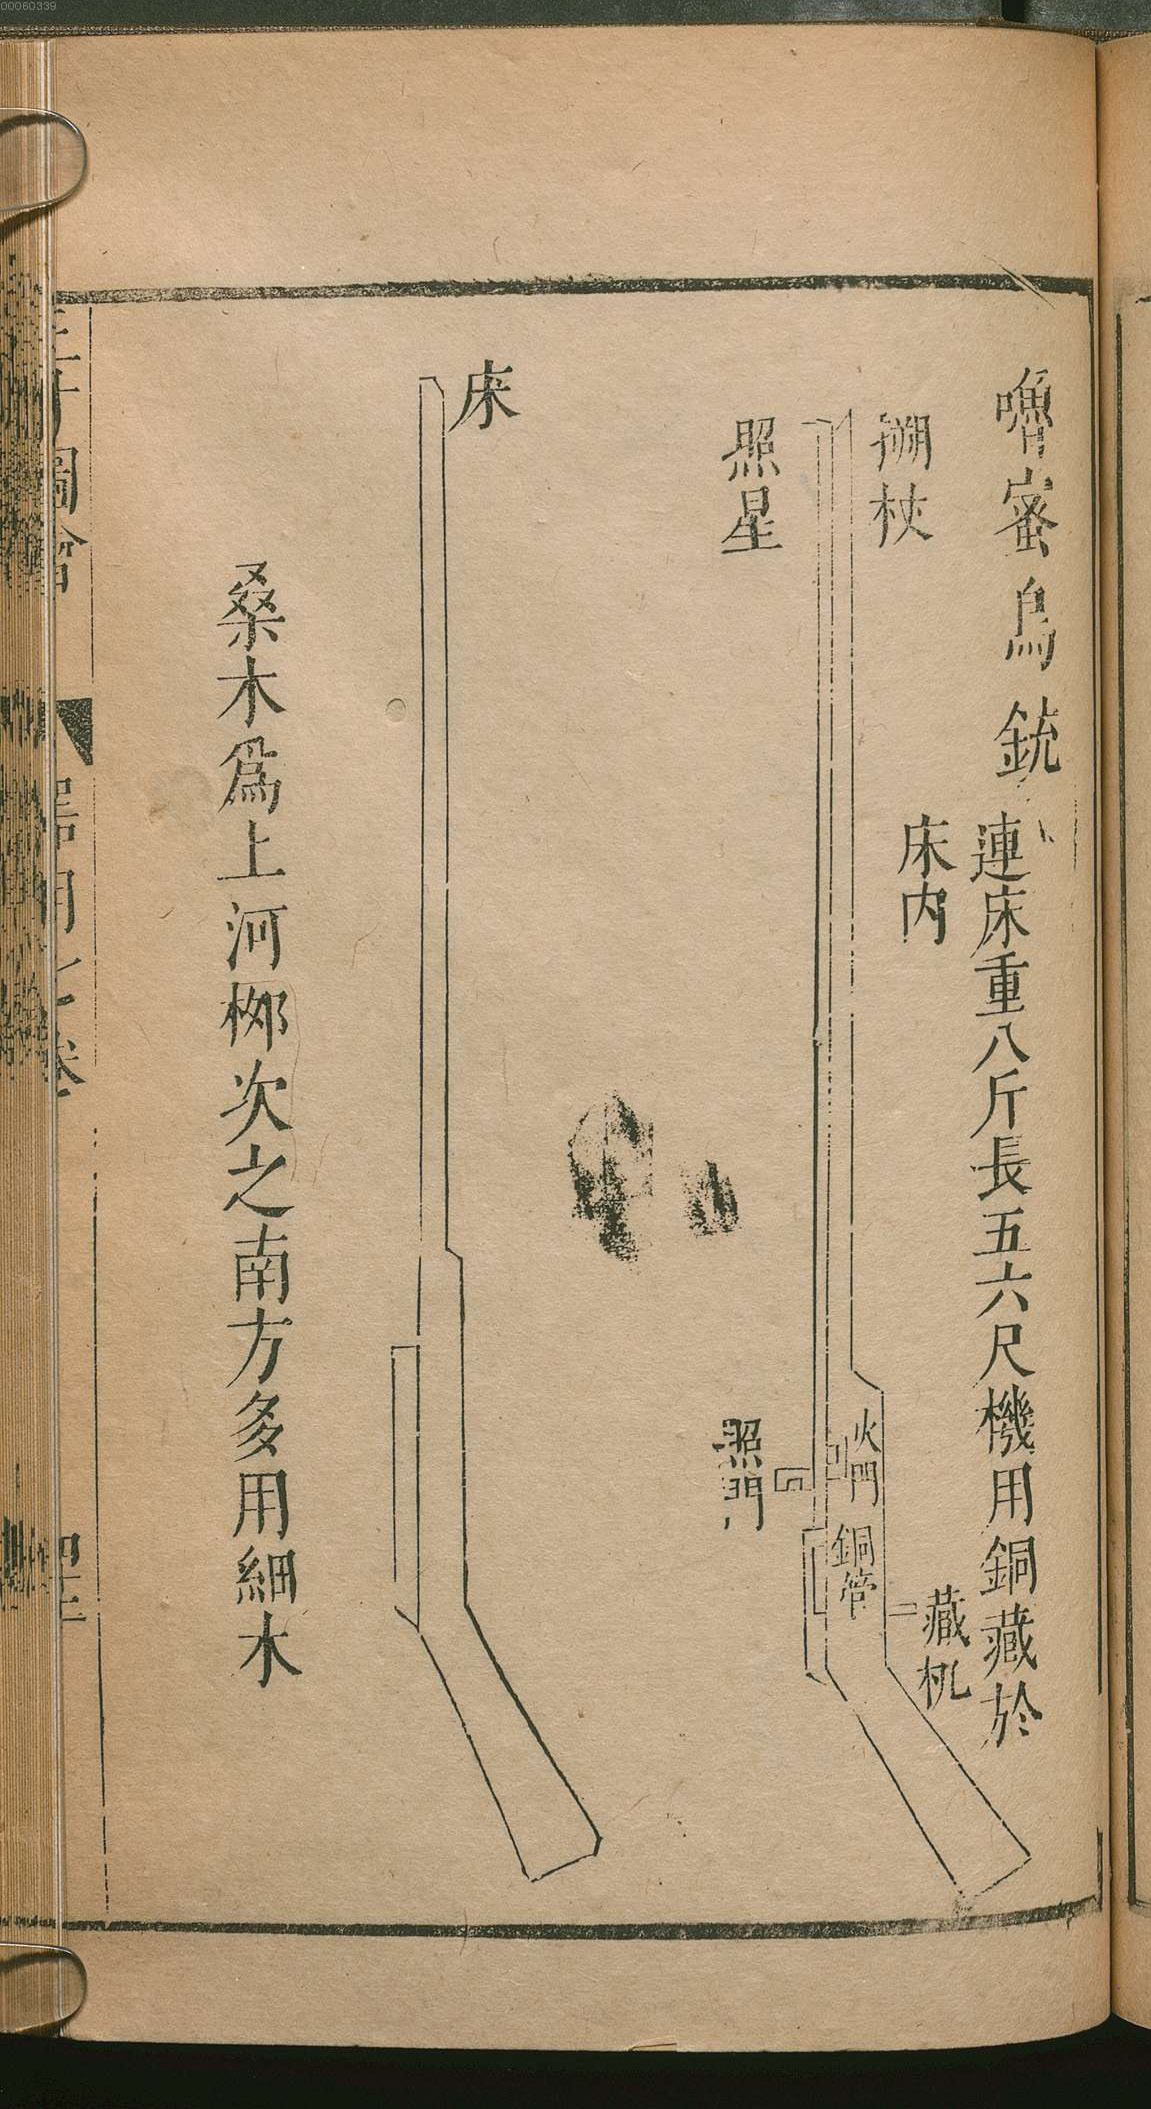 00060339
嚕蜜鳥銃
連床重八斤長五六尺機用銅藏於
床内
搠杖
照星
火門
銅管
藏机
照門
床
桑木為上河桞次之南方多用細木
圖會